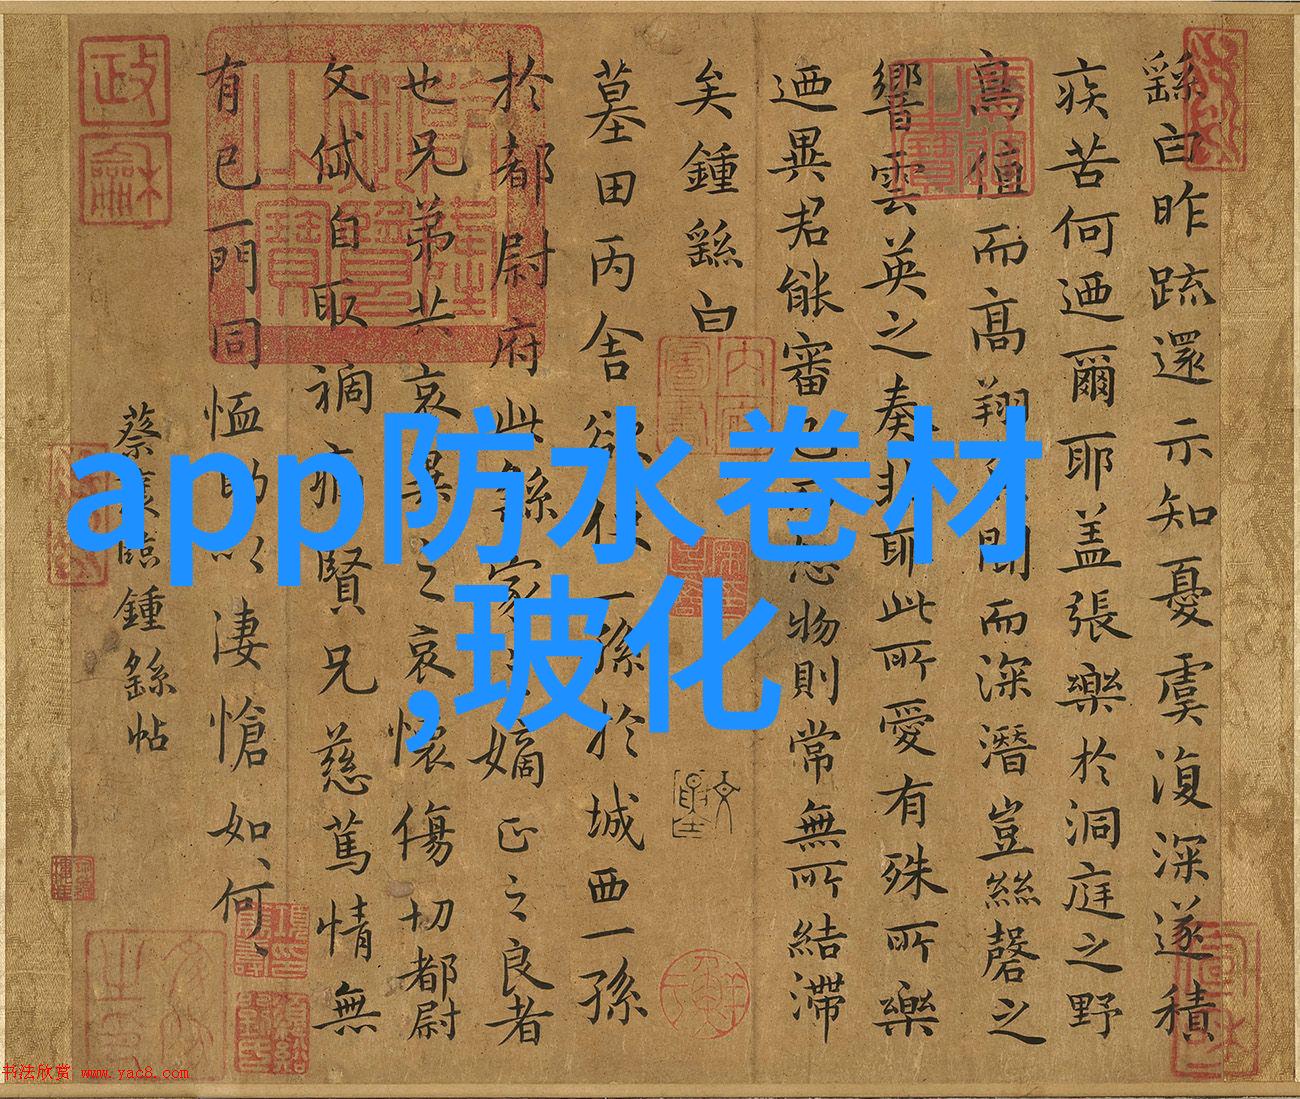 繇白昨疏還示知憂虞復深遂積
疾苦何迺爾耶蓋張樂於洞庭之野
鳥值而高翔人聞而深潛豈絲磬之
響雲英之奏非耶此所愛有殊所樂
迺異君能審己而恕物則常無所結滯
矣鍾繇白
墓田丙舍欲使一孫於城西一孫
於都尉府此繇家之嫡正之良者
也兄弟共哀異之哀懷傷切都尉
文岱自取禍痛賢兄慈篤情無
有已一門同恤助以凄愴如、何、
蔡襄臨鍾繇帖
政龢
app防水卷材
,玻化
书法欣赏 www.yac8.com